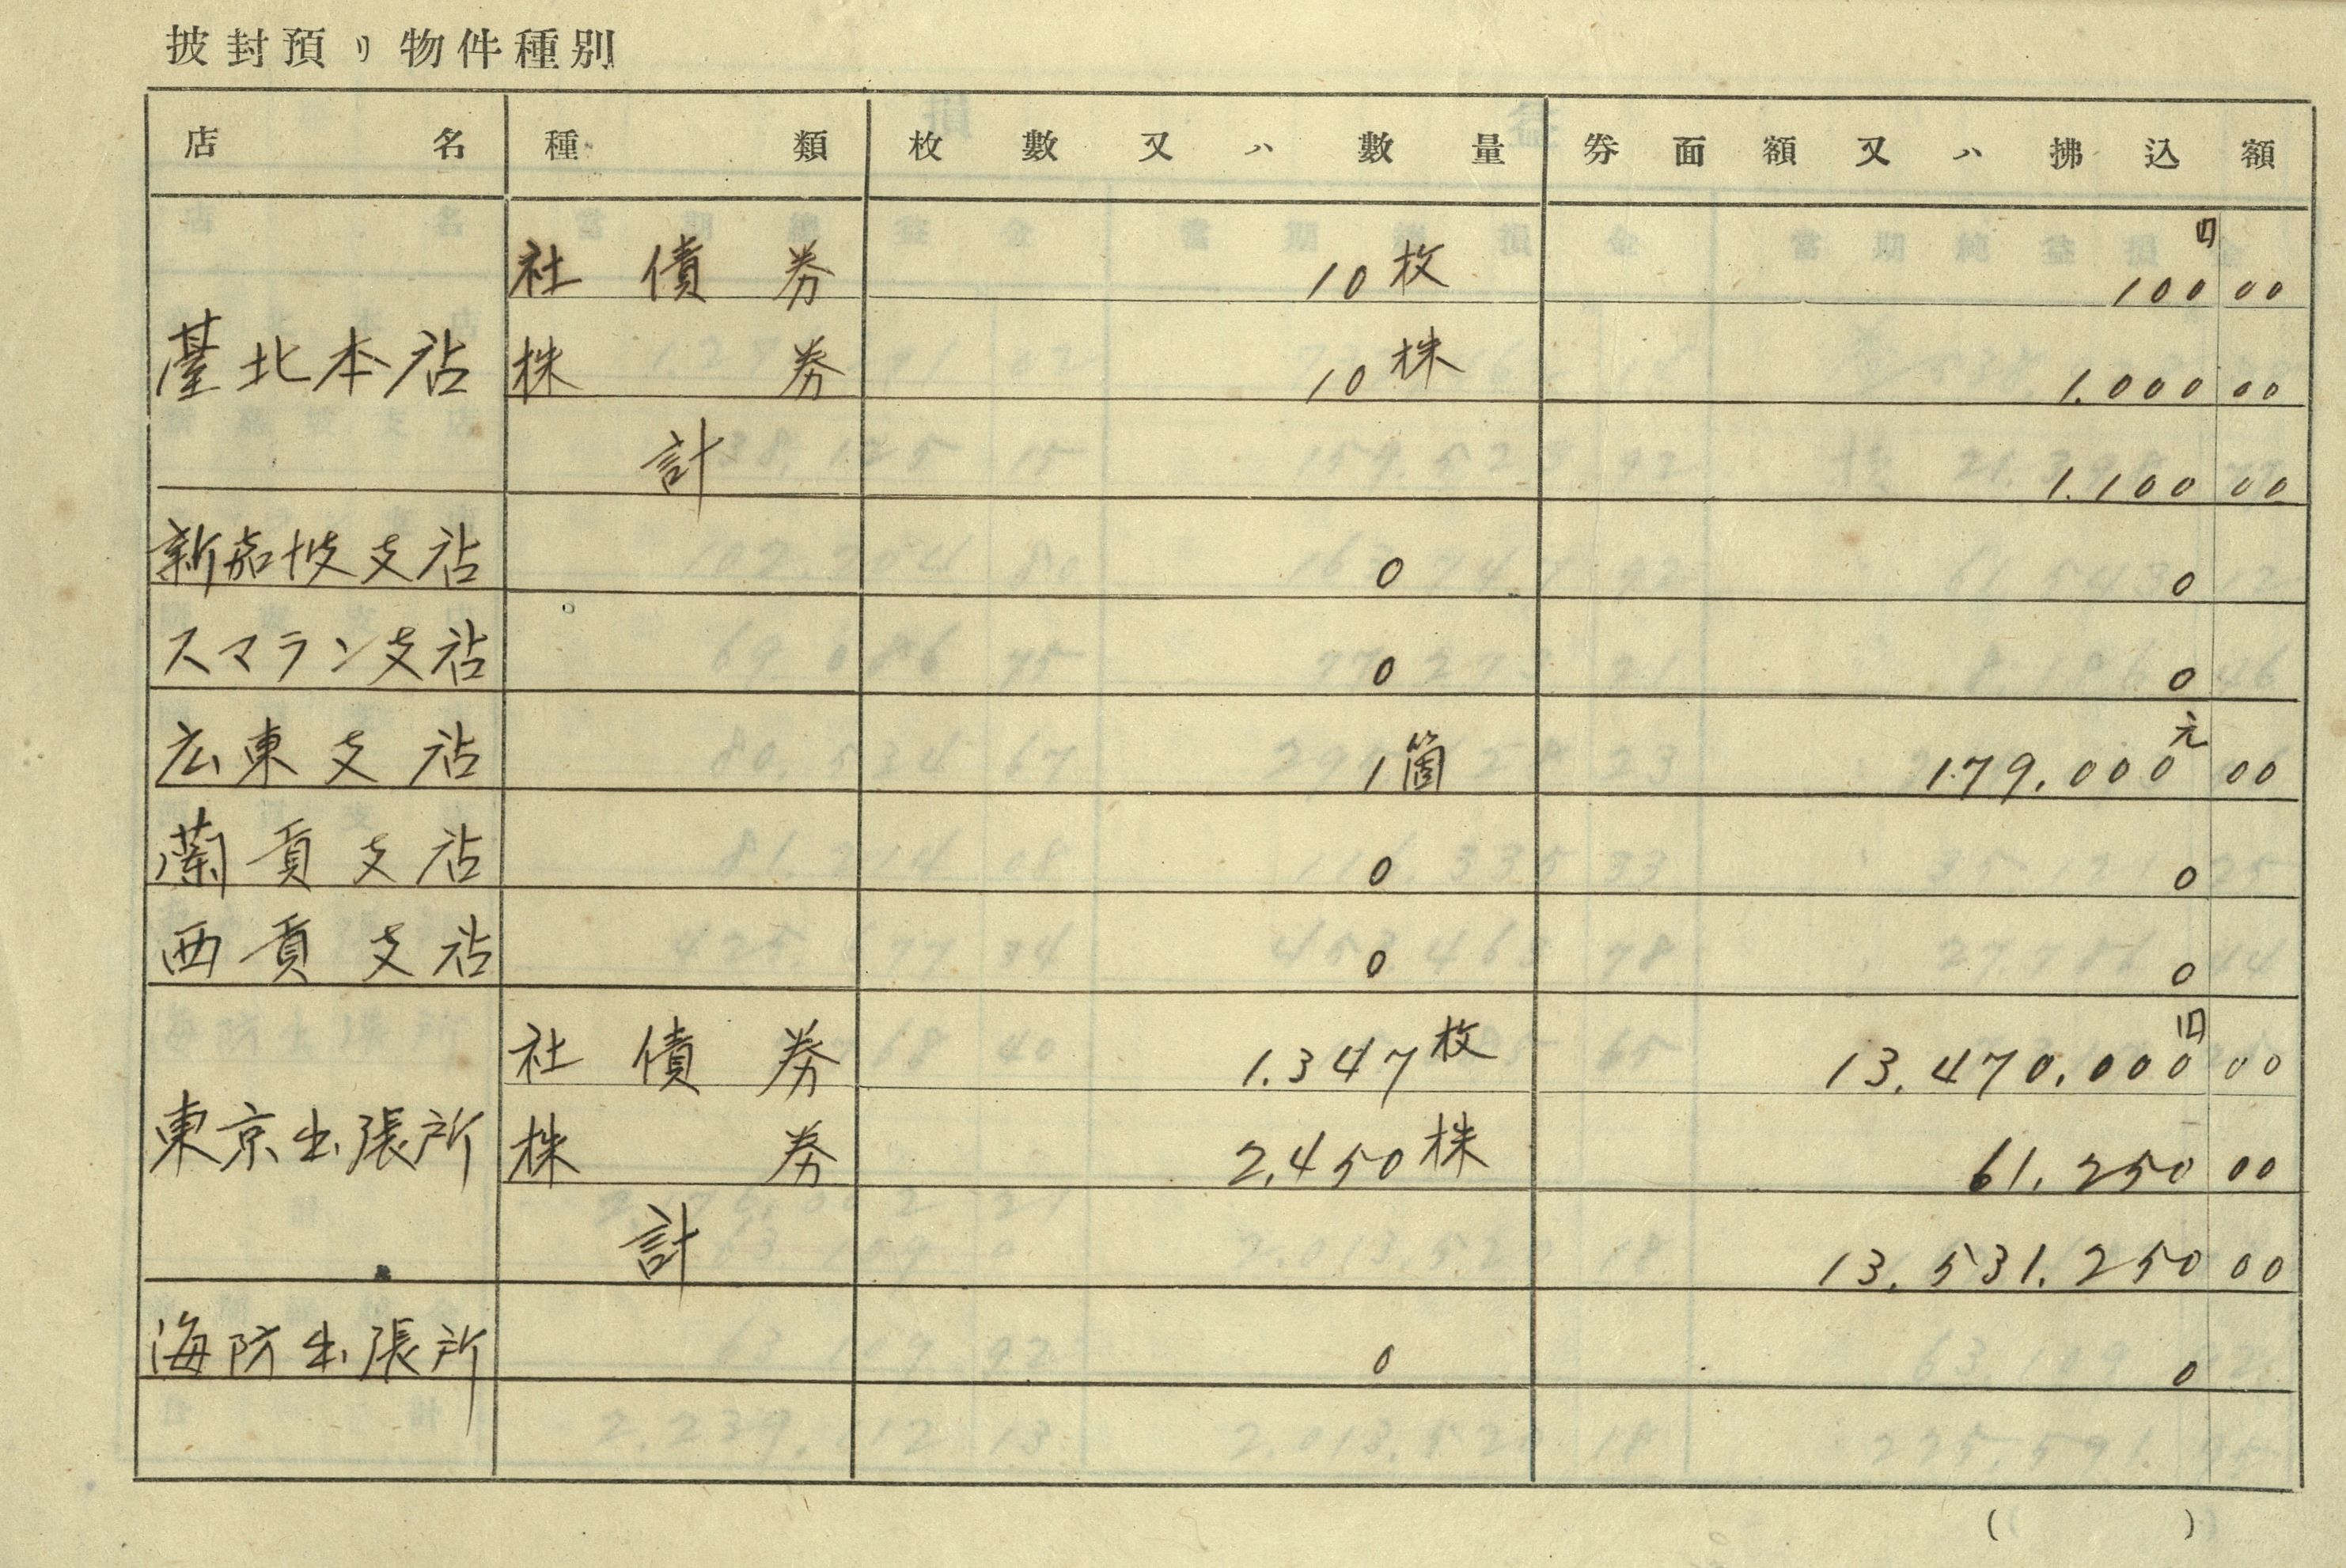 披封預リ物件種別
店名 種類 枚數又ハ數量 券面額又ハ拂込額
臺北本店 社債券 10枚 円 100 00
株券 10株 1.000 00
計 1.100 00
新嘉坡支店 0 0
スマラン支店 0 0
広東支店 1箇 元 179.000 00
蘭貢支店 0 0
西貢支店 0 0
東京出張所 社債券 1.347枚 円 13.470.000 00
株券 2.450株 61.250 00
計 13.531.250 00
海防出張所 0 0
( )